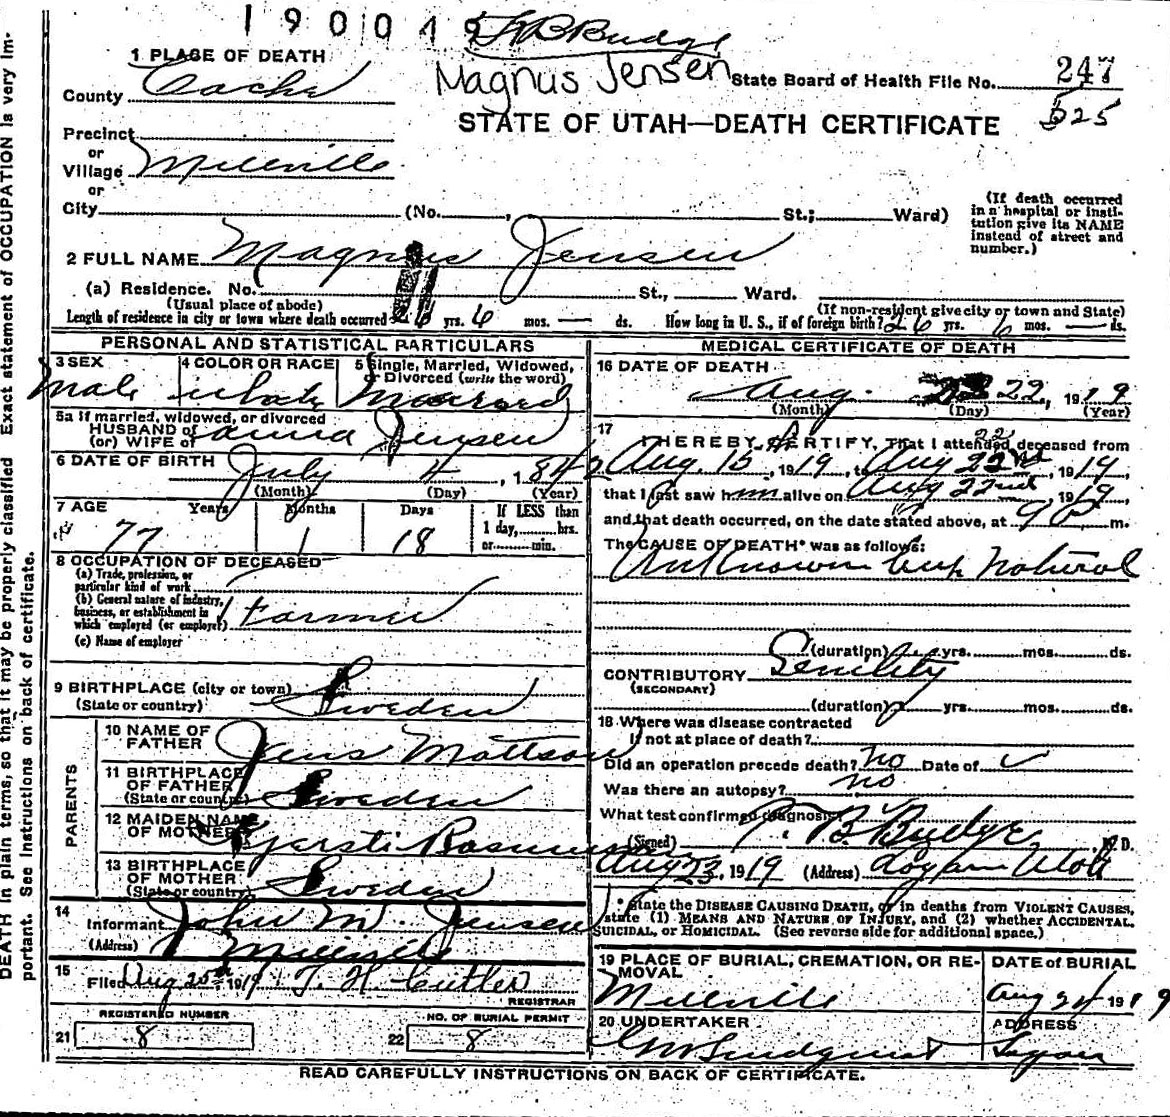 190049
T. B. Budge
Magnus Jensen
1 PLACE OF DEATH
County Cache
State Board of Health File No. 247
525
STATE OF UTAH—DEATH CERTIFICATE
Precinct
or
Village Millville
or
City (No. , St.; Ward)
(If death occurred in a hospital or institution give its NAME instead of street and number.)
2 FULL NAME Magnus Jensen
(a) Residence. No. St., Ward.
(Usual place of abode) (If non-resident give city or town and State)
Length of residence in city or town where death occurred 26 yrs. 6 mos. — ds. How long in U. S., if of foreign birth? 26 yrs. 6 mos. — ds.
PERSONAL AND STATISTICAL PARTICULARS
3 SEX
male
4 COLOR OR RACE
white
5 Single, Married, Widowed, or Divorced (write the word)
Married
5a If married, widowed, or divorced
HUSBAND of
(or) WIFE of Jensen
6 DATE OF BIRTH July 4, 1842
(Month) (Day) (Year)
7 AGE Years Months Days If LESS than 1 day,......hrs. or......min.
77 1 18
8 OCCUPATION OF DECEASED
(a) Trade, profession, or particular kind of work
(b) General nature of industry, business, or establishment in which employed (or employer) Farmer
(c) Name of employer
9 BIRTHPLACE (city or town)
(State or country) Sweden
PARENTS
10 NAME OF FATHER Jens Mattson
11 BIRTHPLACE OF FATHER (State or country) Sweden
12 MAIDEN NAME OF MOTHER Kjersti Rasmus
13 BIRTHPLACE OF MOTHER (State or country) Sweden
14
Informant John M. Jensen
(Address) Millville
15
Filed Aug 25th 1919 T. H. Cutler
REGISTRAR
REGISTERED NUMBER
21 8
NO. OF BURIAL PERMIT
22 8
MEDICAL CERTIFICATE OF DEATH
16 DATE OF DEATH
Aug. 22, 1919
(Month) (Day) (Year)
17
I HEREBY CERTIFY, That I attended deceased from
Aug 15, 1919, to Aug 22nd, 1919
that I last saw him alive on Aug 22nd, 1919,
and that death occurred, on the date stated above, at 9 P m.
The CAUSE OF DEATH* was as follows:
Unknown but Natural
(duration) yrs. mos. ds.
CONTRIBUTORY Senility
(SECONDARY)
(duration) yrs. mos. ds.
18 Where was disease contracted
If not at place of death?
Did an operation precede death? no Date of
Was there an autopsy? no
What test confirmed diagnosis
(Signed) T. B. Budge, M.D.
Aug 23, 1919 (Address) Logan Utah
*State the DISEASE CAUSING DEATH, or in deaths from VIOLENT CAUSES,
state (1) MEANS AND NATURE OF INJURY, and (2) whether ACCIDENTAL,
SUICIDAL, or HOMICIDAL. (See reverse side for additional space.)
19 PLACE OF BURIAL, CREMATION, OR REMOVAL
Millville
DATE OF BURIAL
Aug 24 1919
20 UNDERTAKER
Lindquist
ADDRESS
Logan
READ CAREFULLY INSTRUCTIONS ON BACK OF CERTIFICATE.
DEATH in plain terms, so that it may be properly classified. Exact statement of OCCUPATION is very im-
portant. See instructions on back of certificate.